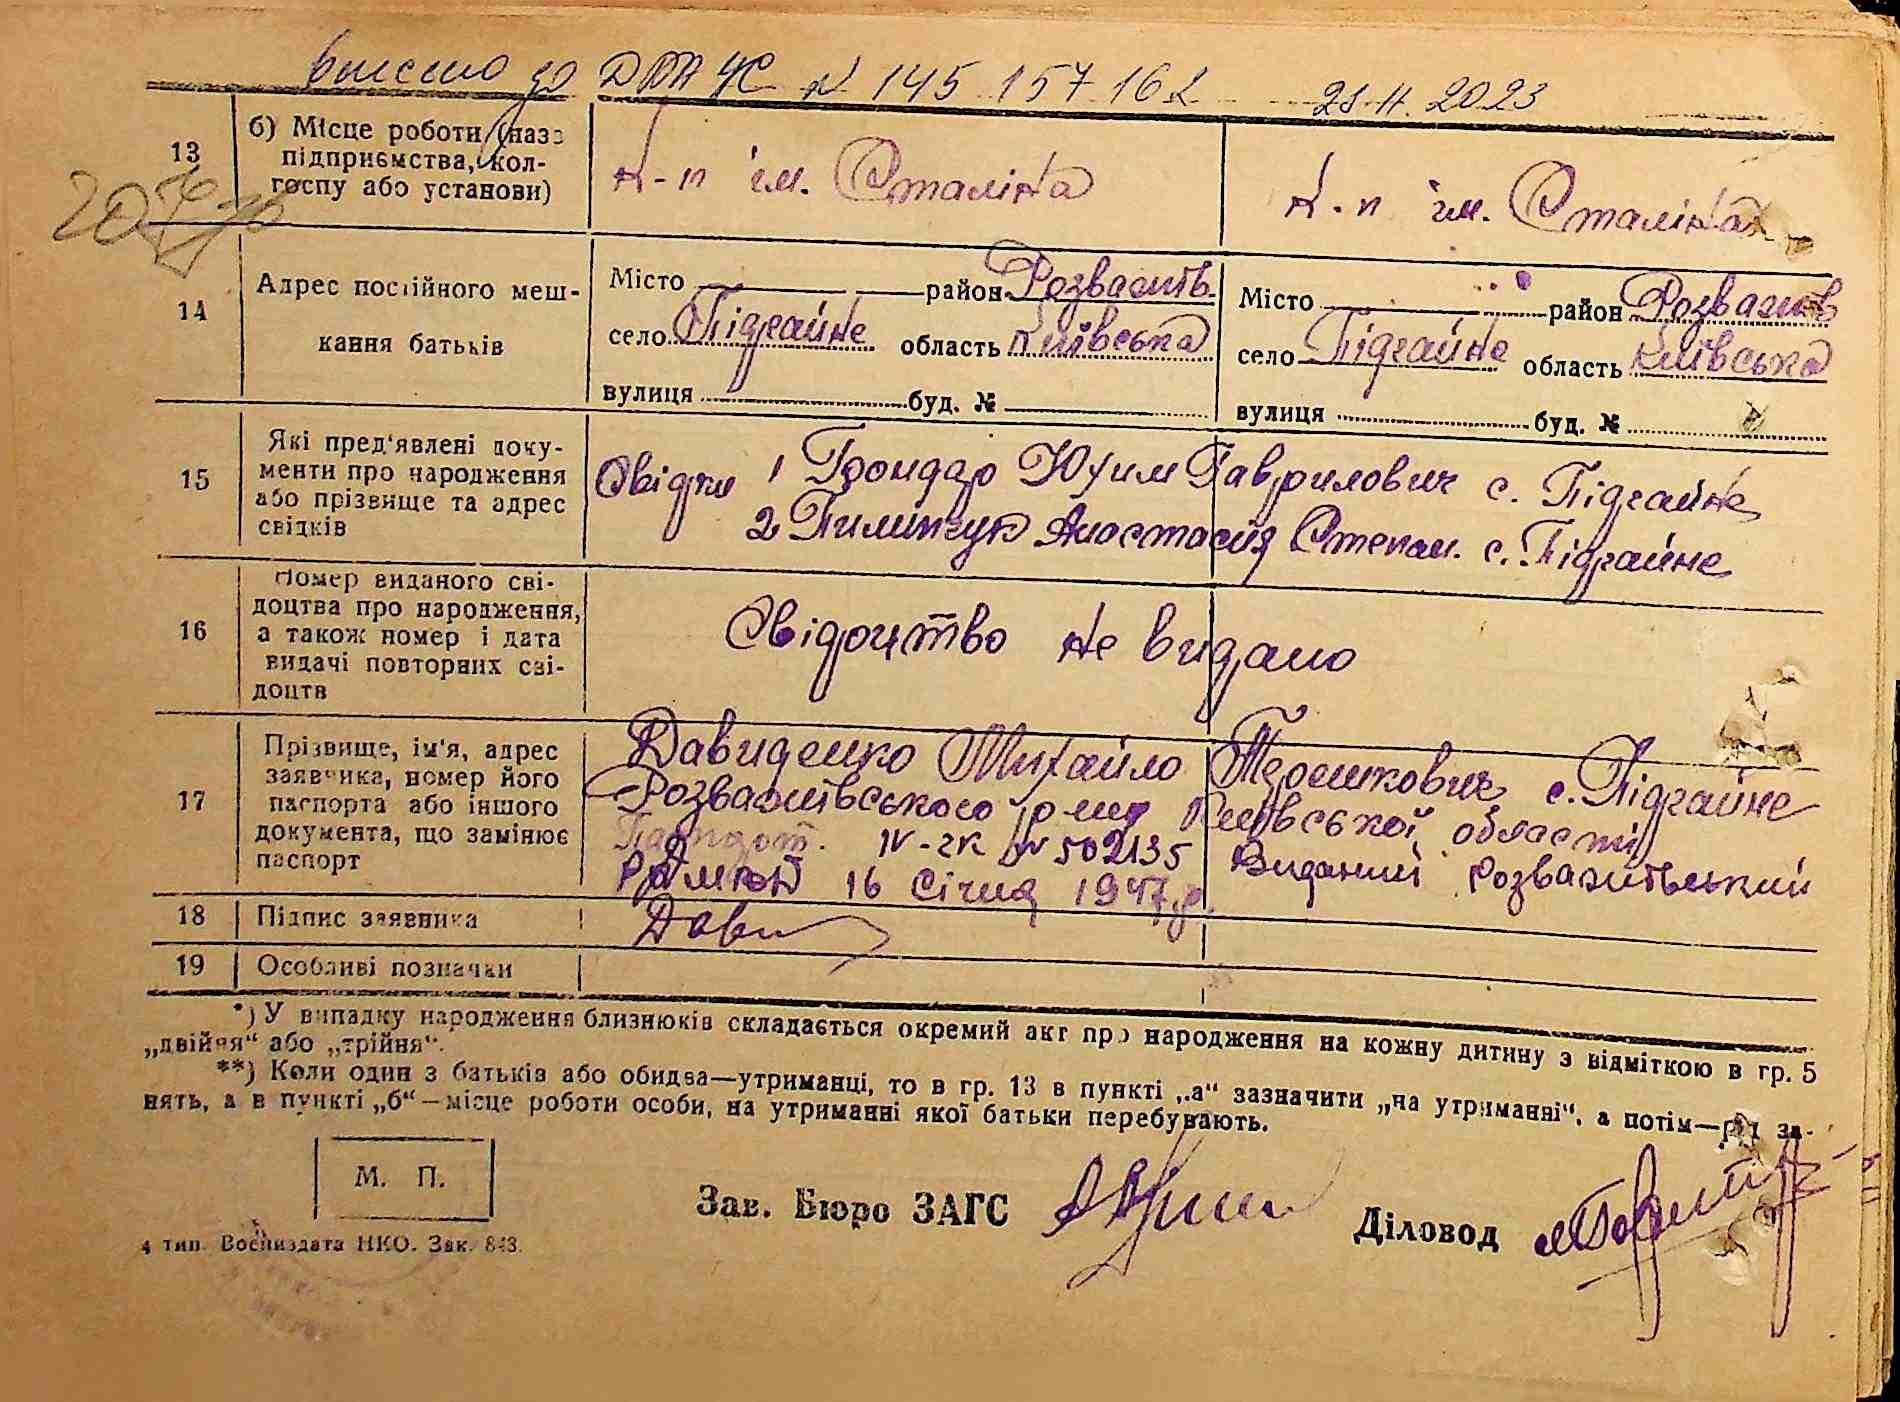 внесено до ДРАЦС № 145 157 162 28.11.2023
13
б) Місце роботи (назв
підприємства, кол-
госпу або установи)
к-п ім. Сталіна
к-п ім. Сталіна
14
Адрес постійного меш-
кання батьків
Місто район Розважів.
село Підгайне область Київська
вулиця буд. №
Місто район Розважів
село Підгайне область Київська
вулиця буд. №
15
Які пред'явлені доку-
менти про народження
або прізвище та адрес
свідків
Свідки 1 Бондар Юхим Гаврилович с. Підгайне
2 Пилипчук Анастасія Степан. с. Підгайне
16
Номер виданого сві-
доцтва про народження,
а також номер і дата
видачі повторних сві-
доцтв
Свідоцтво не видано
17
Прізвище, ім'я, адрес
заявника, номер його
паспорта або іншого
документа, що замінює
паспорт
Давиденко Михайло Терешкович с. Підгайне
Розважівського р-ну Київської області
Паспорт. IV-гк № 502135 Виданий Розважівський
16 Січня 1947 р.
18 Підпис заявника Дави
19 Особливі позначки
*) У випадку народження близнюків складається окремий акт про народження на кожну дитину з відміткою в гр. 5
„двійня“ або „трійня“.
**) Коли один з батьків або обидва—утриманці, то в гр. 13 в пункті „а“ зазначити „на утриманні“, а потім—рід за-
нять, а в пункті „б“—місце роботи особи, на утриманні якої батьки перебувають.
М. П.
Зав. Бюро ЗАГС
Діловод
4 тип. Воениздата НКО. Зак. 843.